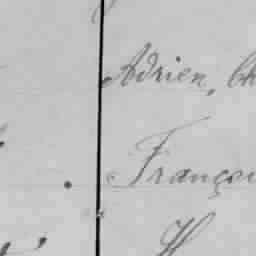 Adrien, Ch
Françoi